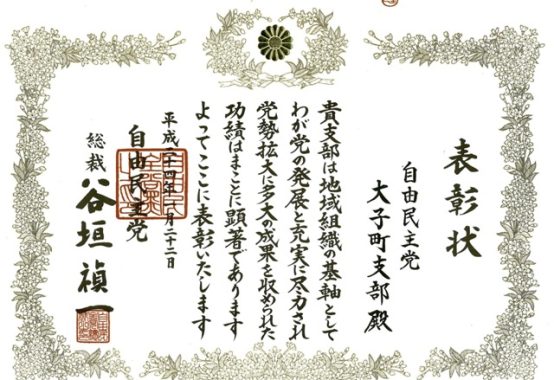 表彰状
自由民主党
大子町支部殿
貴支部は地域組織の基軸として
わが党の発展と充実に尽力され
党勢拡大に多大の成果を収められた
功績はまことに顕著であります
よってここに表彰いたします
平成二十四年一月二十二日
自由民主党
総裁 谷垣禎一